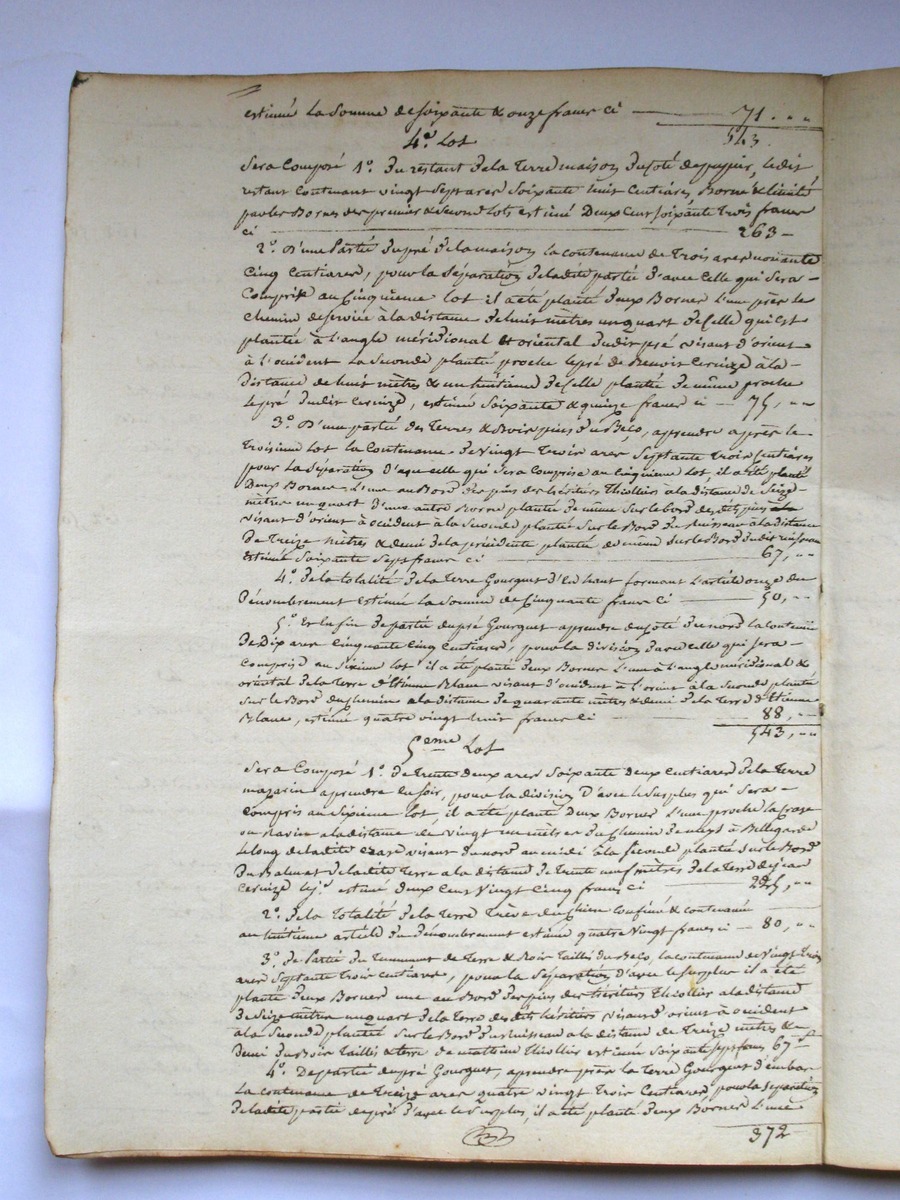 estimé la somme de soixante & onze francs ci — 71 . „ „
543.
4.e Lot
Sera Composé 1.o Du restant de la Terre maison du coté de papier, le dit
restant Contenant vingt sept ares soixante huit Centiares, Borné & limité
par les Bornes des premier & second lots estimé Deux Cent soixante Trois francs
ci — 263 —
2.o D'une Partie du pré de la maison la contenance de Trois ares nonante
Cinq Centiares, pour la séparation de ladite partie d'avec Celle qui Sera —
Comprise au Cinquième lot il a été planté deux Bornes l'une près le
chemin de service à la distance de huit mètres un quart de Celle qui est
plantée à l'angle méridional & oriental dudit pré visant d'orient
à l'occident la seconde planté proche le pré de Benoit Cerisze à la —
Distance de huit mètres & un huitième de Celle plantée de même proche
le pré dudit Cerisze, estimée Soixante & quinze francs ci — 75, „ „
3.o D'une partie des Terres & Bois pins du Beço, a prendre après le
Troisième lot la Contenance de Vingt Trois ares Septante Trois Centiares
pour la séparation d'avec celle qui sera comprise au Cinquième lot, il a été planté
Deux Bornes l'une au Bord des pins des héritiers Thiollier à la distance de Seize
mètres un quart d'une autre Borne plantée de même sur le bord des dits pins
visant d'orient à occident à la seconde plantée sur le Bord du Ruisseau à la distance
De Treize mètres & demi de la précédente plantée de même sur le Bord dudit ruisseau
Estimée Soixante Sept francs ci — 67, „ „
4.o De la totalité de la Terre Gourguet d'En haut formant l'article onze du
Dénombrement Estimée la Somme de Cinquante francs Ci — 50, „
5.o Et la fin de partie du pré Gourguet a prendre du coté du nord la contenue
De Dix ares Cinquante Cinq Centiares, pour la division d'avec celle qui sera —
Compris au Sixième lot il a été planté deux Bornes l'une à l'angle méridional &
oriental de la Terre d'Etienne Blanc visant d'occident à l'orient à la seconde plantée
sur le Bord du chemin à la distance de quarante mètres & demi de la Terre d'Etienne
Blanc, estimée quatre vingt huit francs ci — 88, „
543, „ „
5eme Lot
Sera Composé 1.o De Trente deux ares soixante deux centiares de la Terre
magarin a prendre du soir, pour la division D'avec le surplus qui Sera —
Compris au Sixième lot, il a été planté Deux Bornes l'une proche la craze
ou Ravin à la distance de vingt un mètres du Chemin de à Bellegarde
le long de la dite craze visant du nord au midi à la seconde plantée sur le Bord
Du de la dite Terre à la distance de Trente neuf mètres de la Terre de jean
Cerisze estimé Deux Cent Vingt Cinq francs ci — 225, „ „
2.o De la Totalité de la Terre Trève du Chiene Confiné & contenance
au huitième article du Dénombrement estimé quatre Vingt francs ci — 80, „ „
3.o De Partie du Tennement de Terre & Bois Taillis du Beço, la contenance de Vingt Trois
ares Septante Trois Centiares, pour la séparation d'avec le surplus il a été
planté deux Bornes une au Bord des pins des héritiers Thiollier à la distance
De Seize mètres un quart de la Terre des dits héritiers visant d'orient à occident
à la seconde plantée sur le Bord du Ruisseau à la distance de Treize mètres &
Demi du Bois Taillis & terre de mathieu Thiollier estimée Soixante sept francs 67 „
4.o De partie du pré Gourguet, a prendre près la Terre Gourguet d'Embas
la contenance de Treize ares quatre vingt Trois Centiares, pour la séparation
De ladite partie de pré d'avec le surplus, il a été planté deux Bornes l'une
372